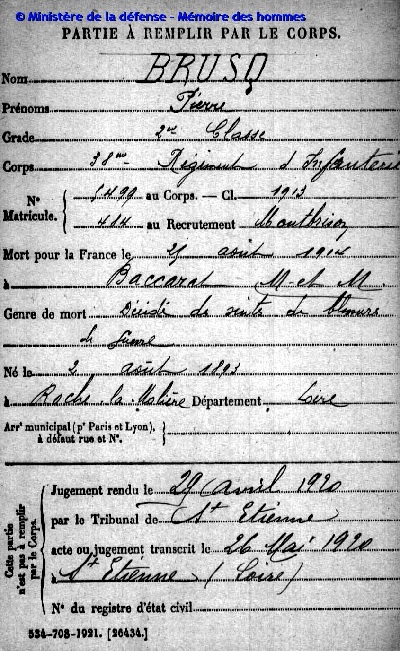 © Ministère de la défense - Mémoire des hommes
PARTIE À REMPLIR PAR LE CORPS.
Nom BRUSQ
Prénoms Pierre
Grade 2me Classe
Corps 38me Régiment d'Infanterie
N° Matricule. { 5499 au Corps. — Cl. 1913
414 au Recrutement Montbrison
Mort pour la France le 25 août 1914
à Baccarat M-et M.
Genre de mort Décédé de suite de blessures
de guerre
Né le 2 août 1893
à Roche-la-Molière Département Loire
Arr' municipal (p' Paris et Lyon),
à défaut rue et N°.
Cette partie n'est pas à remplir par le Corps.
Jugement rendu le 29 avril 1920
par le Tribunal de St Etienne
acte ou jugement transcrit le 26 Mai 1920
à St Etienne (Loire)
N° du registre d'état civil
534-708-1921. [26434.]